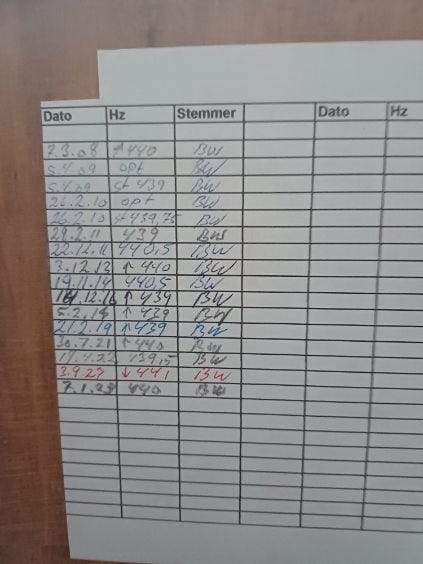 Dato Hz Stemmer Dato Hz
7.3.08 ↑ 440 BW
5.4.09 opt BW
5.4.09 st 439 BW
26.2.10 opt BW
26.2.10 st 439,75 BW
28.2.11 439 BW
22.12.11 440,5 BW
3.12.13 ↑ 440 BW
19.11.14 440,5 BW
14.12.16 ↑ 439 BW
5.2.18 ↑ 439 BW
21.2.19 ↑ 439 BW
30.7.21 ↑ 440 BW
19.4.22 439,5 BW
3.9.23 ↓ 441 BW
440 BW